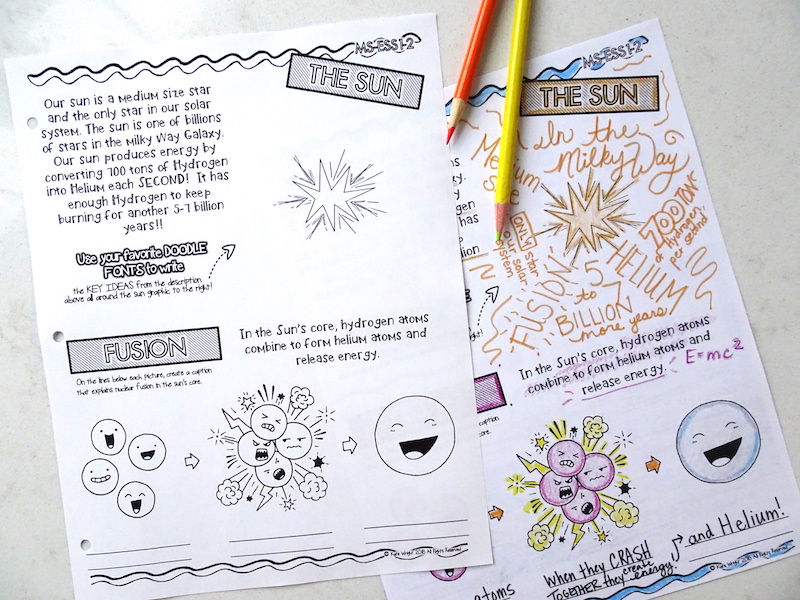 MS-ESS1-2
THE SUN
Our sun is a medium size star
and the only star in our solar
system. The sun is one of billions
of stars in the Milky Way Galaxy.
Our sun produces energy by
converting 700 tons of Hydrogen
into Helium each SECOND! It has
enough Hydrogen to keep
burning for another 5-7 billion
years!!
Use your favorite DOODLE
FONTS to write
the KEY IDEAS from the description
above all around the sun graphic to the right!
FUSION
On the lines below each picture, create a caption
that explains nuclear fusion in the sun's core.
In the Sun's core, hydrogen atoms
combine to form helium atoms and
release energy.
© Kate Wright 2018 All Rights Reserved
MS-ESS1-2
THE SUN
In the
Milky Way
Medium
size
ONLY star
our solar
system
700 TONS
of hydrogen
per
second
FUSION!
HELIUM
5
to 7
BILLION
more years
In the Sun's core, hydrogen atoms
combine to form helium atoms and
release energy.
E=mc²
caption
core.
atoms
when they CRASH
TOGETHER they create
energy.
and Helium!
© Kate Wright 2018 All Rights Reserved